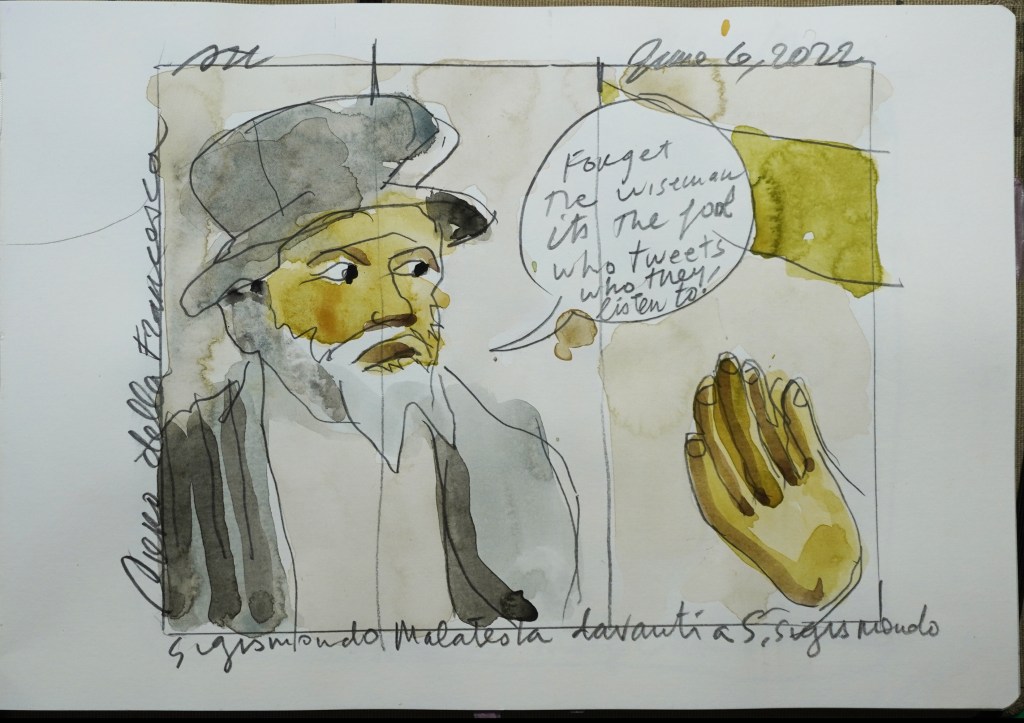 June 6, 2022
Piero della Francesca
Forget
the wiseman
its the fool
who tweets
who they
listen to!
Sigismondo Malatesta davanti a S. Sigismondo